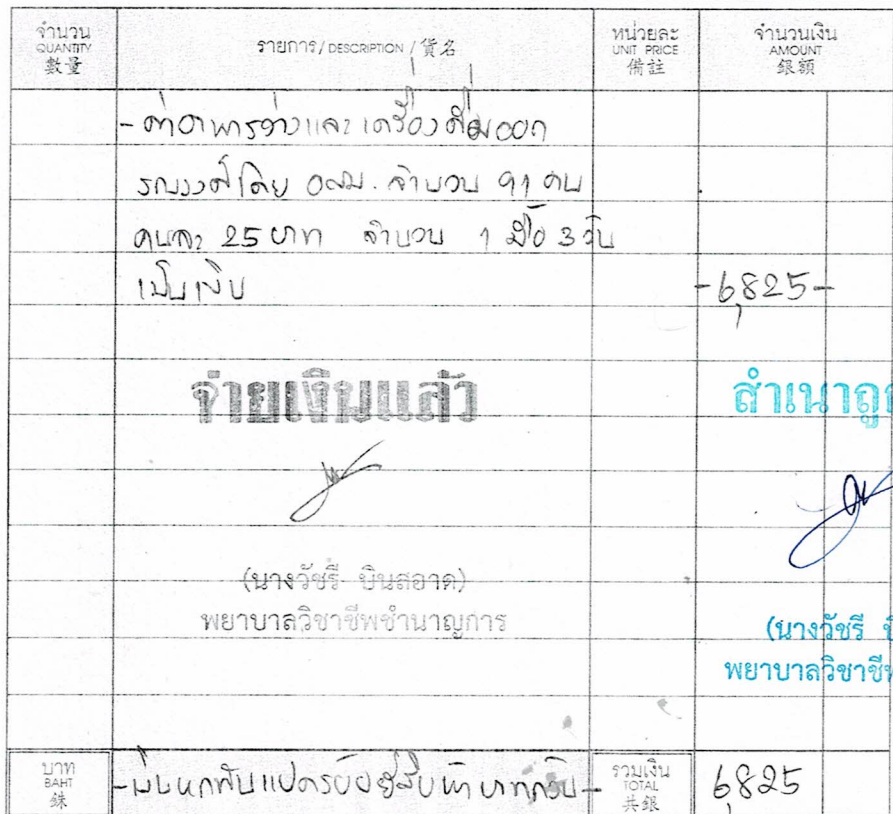 จำนวน
QUANTITY
數量
รายการ/DESCRIPTION/貨名
หน่วยละ
UNIT PRICE
備註
จำนวนเงิน
AMOUNT
銀額
- ค่าอาหารว่างและเครื่องดื่มออก
รณรงค์โดย อสม. จำนวน 91 คน
คนละ 25 บาท จำนวน 1 มื้อ 3 วัน
เป็นเงิน -6,825-
จ่ายเงินแล้ว สำเนาถูก
(นางวัชรี บินสอาด)
พยาบาลวิชาชีพชำนาญการ
(นางวัชรี
พยาบาลวิชาชีพ
บาท
BAHT
銖
-หกพันแปดร้อยยี่สิบห้าบาทถ้วน-
รวมเงิน
TOTAL
共銀
6,825